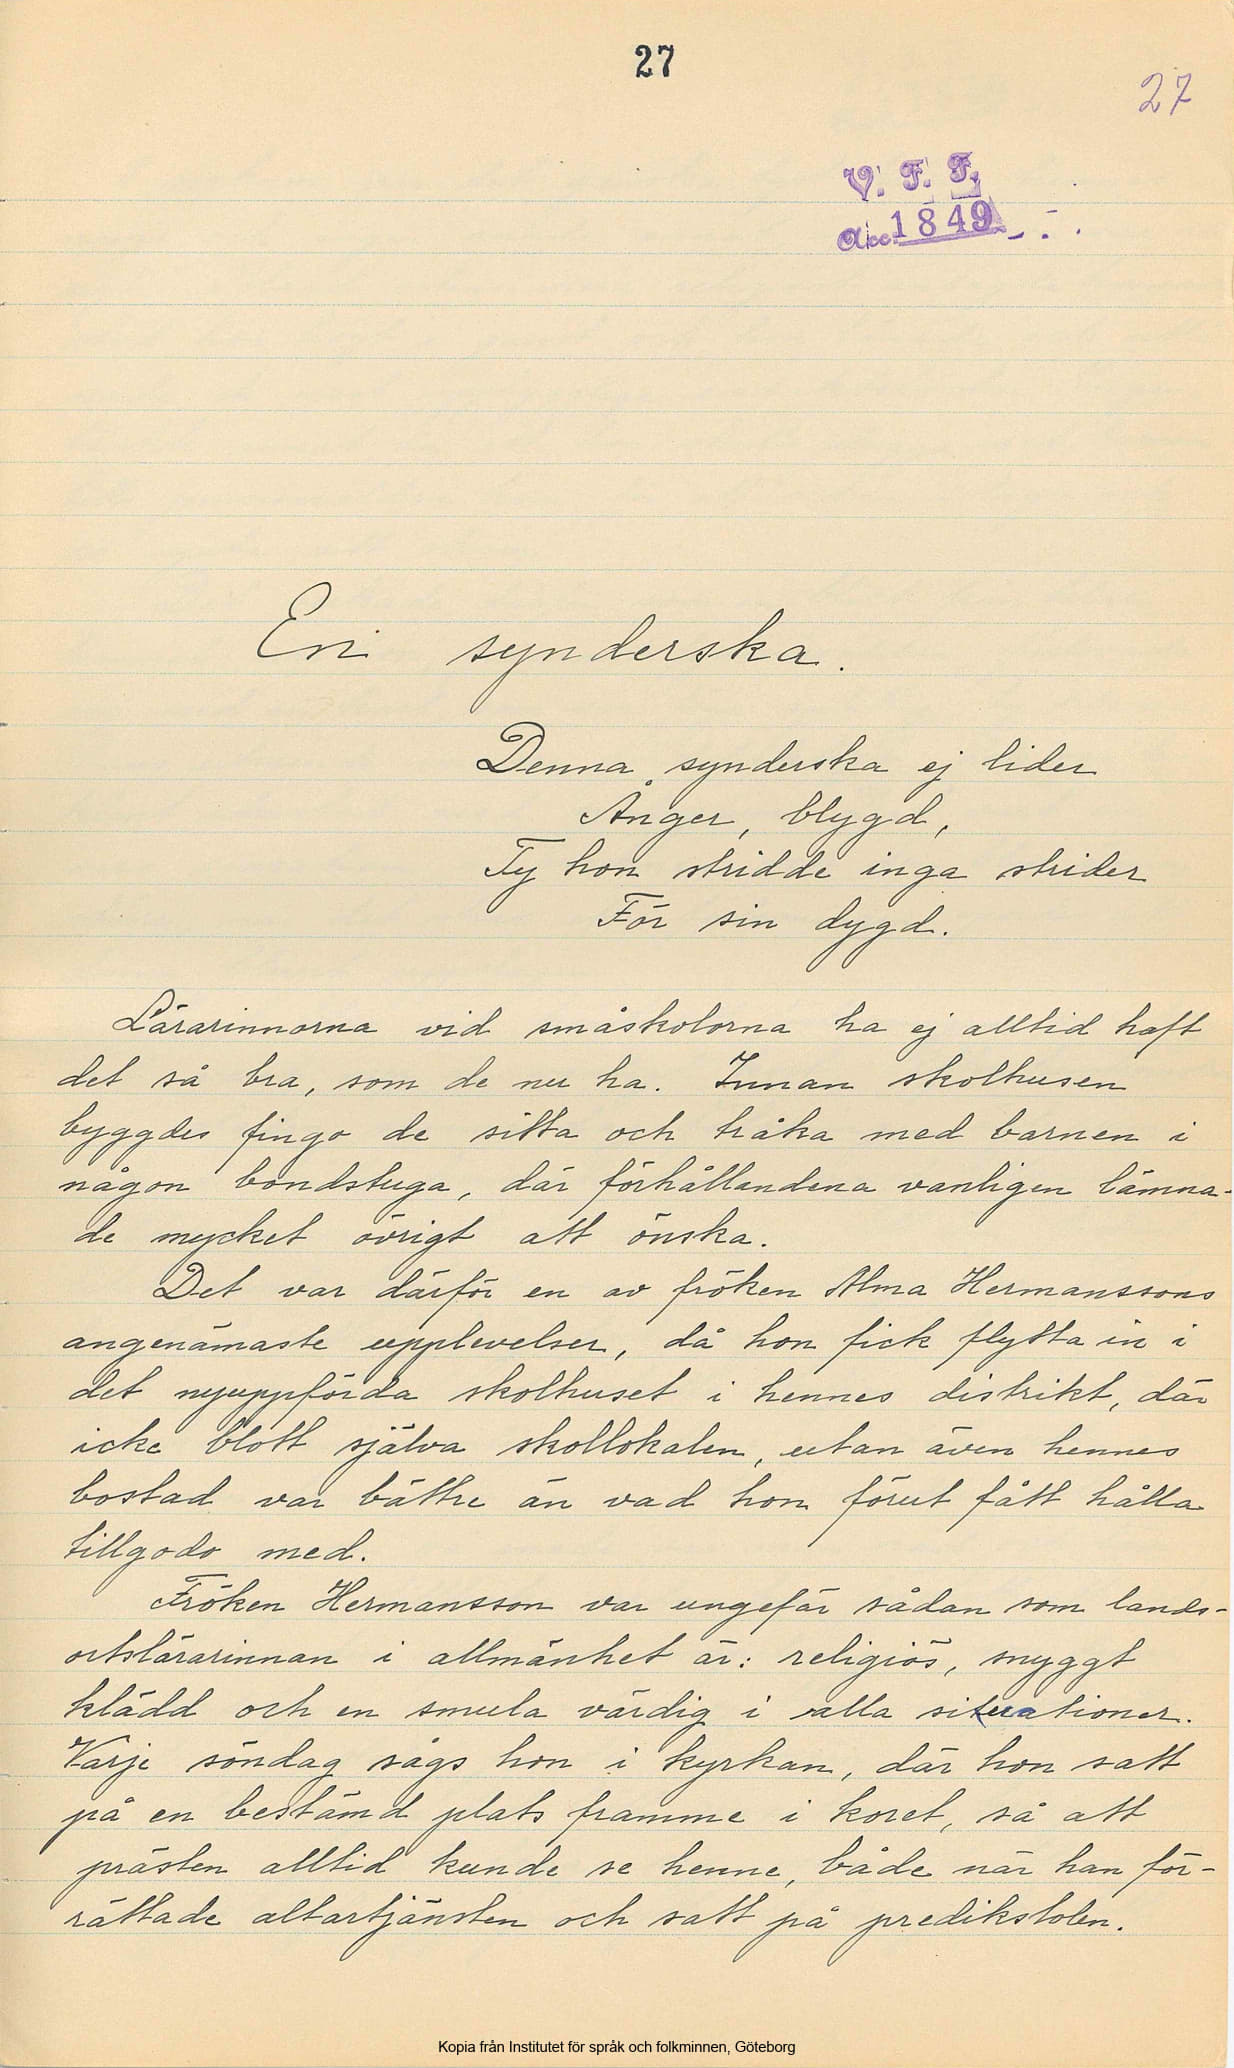 27
27
V. F. F.
acc. 1849
En synderska.
Denna synderska ej lider
Ånger, blygd,
Ty hon stridde inga strider
För sin dygd.
Lärarinnorna vid småskolorna ha ej alltid haft
det så bra, som de nu ha. Innan skolhusen
byggdes fingo de sitta och tråka med barnen i
någon bondstuga, där förhållandena vanligen lämna-
de mycket övrigt att önska.
Det var därför en av fröken Alma Hermanssons
angenämaste upplevelser, då hon fick flytta in i
det nyuppförda skolhuset i hennes distrikt, där
icke blott själva skollokalen, utan även hennes
bostad var bättre än vad hon förut fått hålla
tillgodo med.
Fröken Hermansson var ungefär sådan som lands-
ortslärarinnan i allmänhet är: religiös, snyggt
klädd och en smula värdig i alla situationer.
Varje söndag sågs hon i kyrkan, där hon satt
på en bestämd plats framme i koret, så att
prästen alltid kunde se henne, både när han för-
rättade altartjänsten och satt på predikstolen.
Kopia från Institutet för språk och folkminnen, Göteborg